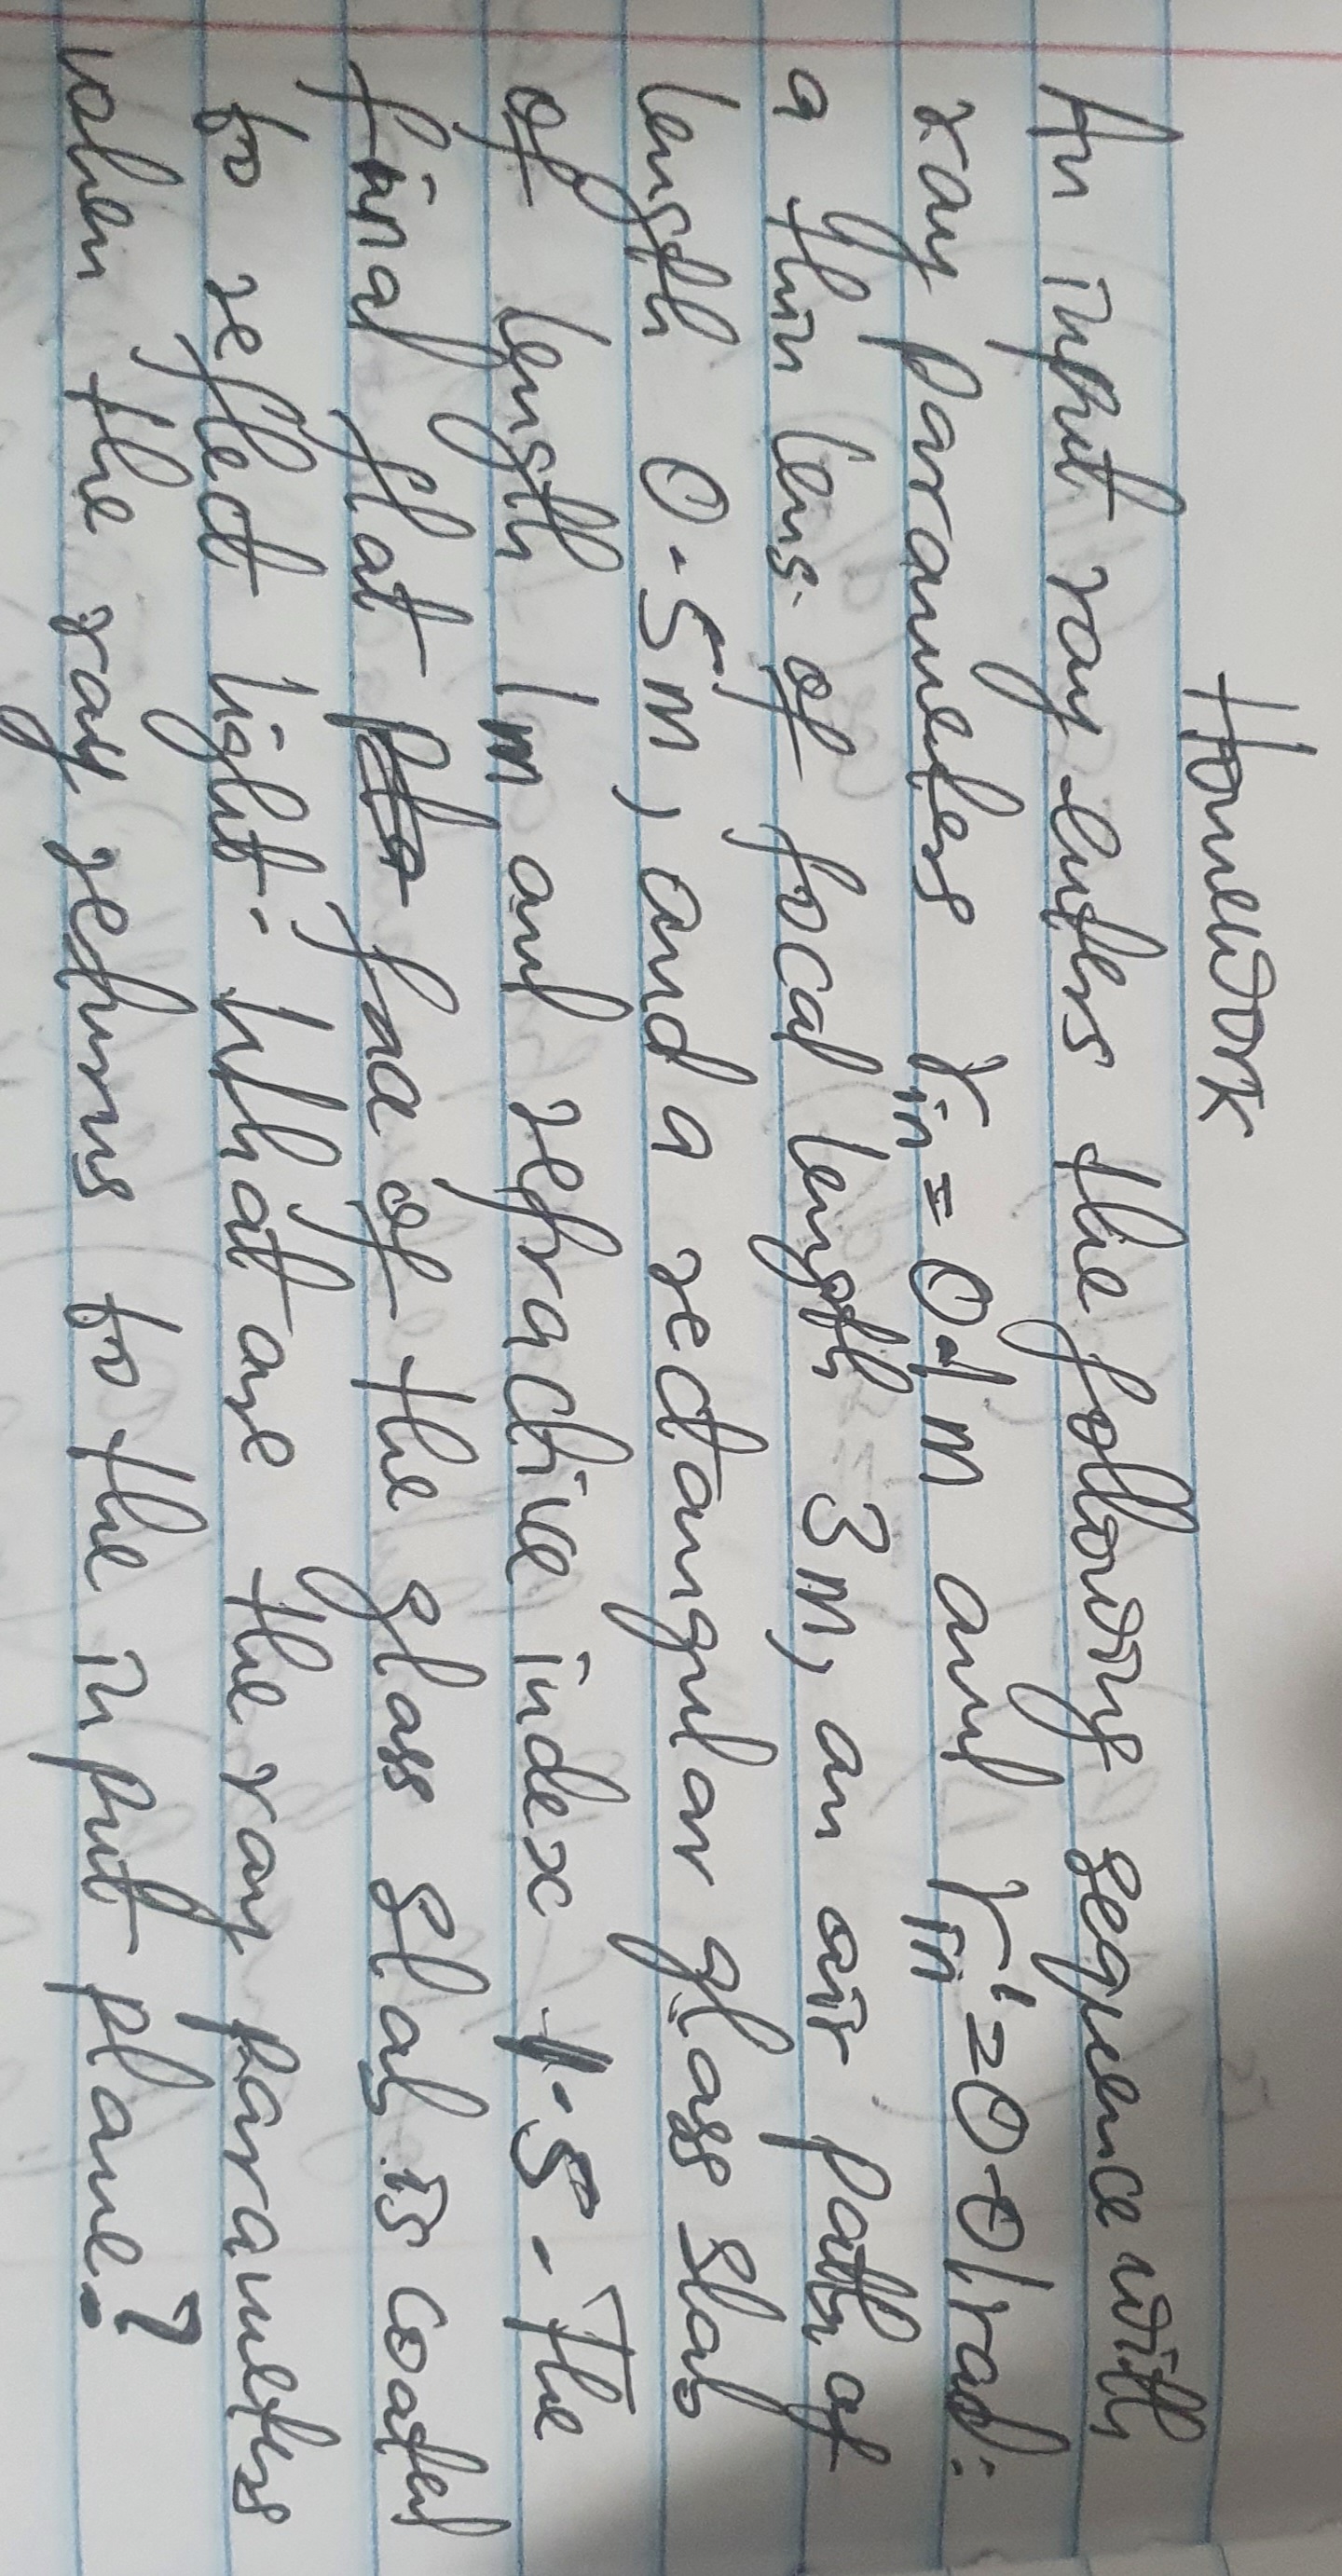 Homework
An input ray enters the following sequence with
ray parameters rin = 0.1m and r'in = 0.01rad:
a thin lens of focal length 3m, an air path of
length 0.5m, and a rectangular glass slab
of length 1m and refractive index 1.5. The
final flat face of the glass slab is coated
to reflect light. What are the ray parameters
when the ray returns to the input plane?